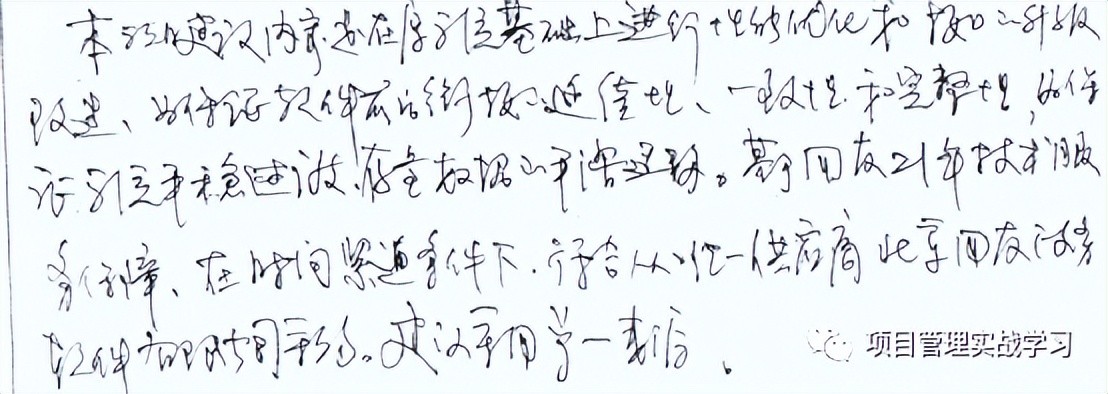 本项目建设内容是在原系统基础上进行性能优化和接口的升级
改造、为保证软件应的衔接、延续性、一致性和完整性,为保
证系统平稳过渡、存量数据的平滑迁移。基于用友21年技术服
务保障、在时间紧迫条件下,符合从唯一供应商北京用友政务
软件有限公司采购。建议采用单一来源。
项目管理实战学习